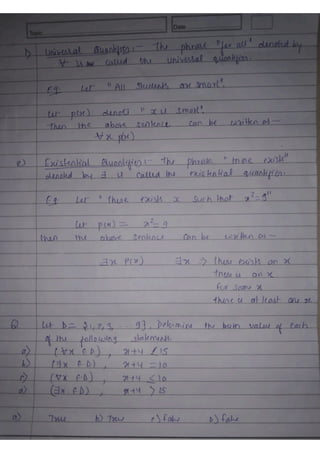 Topic Date
1) Universal Quantifier:- The phrase "for all" denoted by
∀ is called the universal quantifier.
Eg Let "All Students are smart".
Let p(x) denote "x is smart".
Then the above sentence can be written as —
∀x p(x)
2) Existential Quantifier:- The phrase "there exists"
denoted by ∃ is called the existential quantifier.
Eg Let "there exists x such that x²=9"
Let p(x) = x²=9
then the above sentence can be written as —
∃x P(x) ∃x ⇒ there exists an x
there is an x
for some x
there is at least one x
Q Let D= {1,2,3, ... 9}, Determine the truth value of each
of the following statement
a) (∀x ∈ D), x+4 < 15
b) (∃x ∈ D), x+4 = 10
c) (∀x ∈ D), x+4 ≤ 10
d) (∃x ∈ D), x+4 > 15
a) True b) True c) false D) false